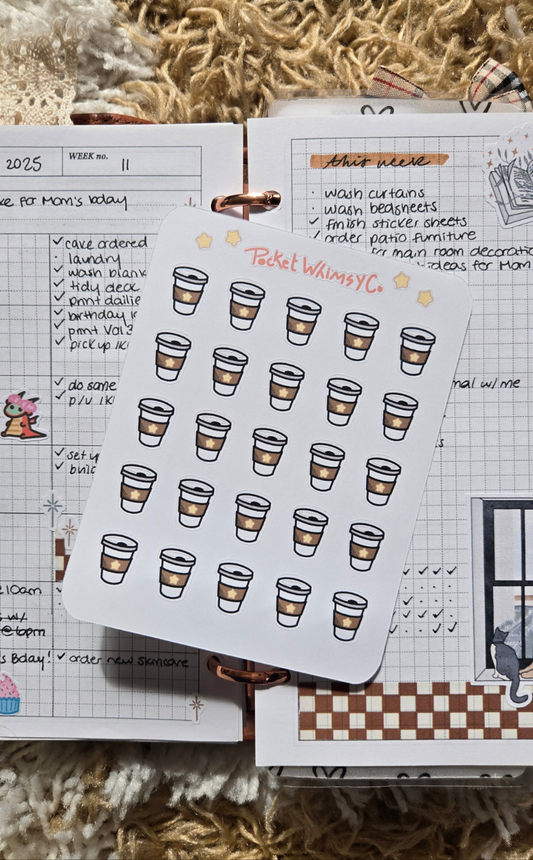 2025
WEEK no. 11
ke for Mom's bday
✓ cake ordered
· laundry
✓ wash blank
✓ tidy deck
✓ print dailie
✓ birthday
✓ print Vol 3
✓ pick up
✓ do some
✓ p/u
✓ set up
✓ build
10am
w/
@ 6pm
's Bday!
✓ order new skincare
PocketWhimsyCo
this week
· wash curtains
· wash bedsheets
✓ finish sticker sheets
✓ order patio furniture
for main room decoratio
ideas for Mom
w/ me